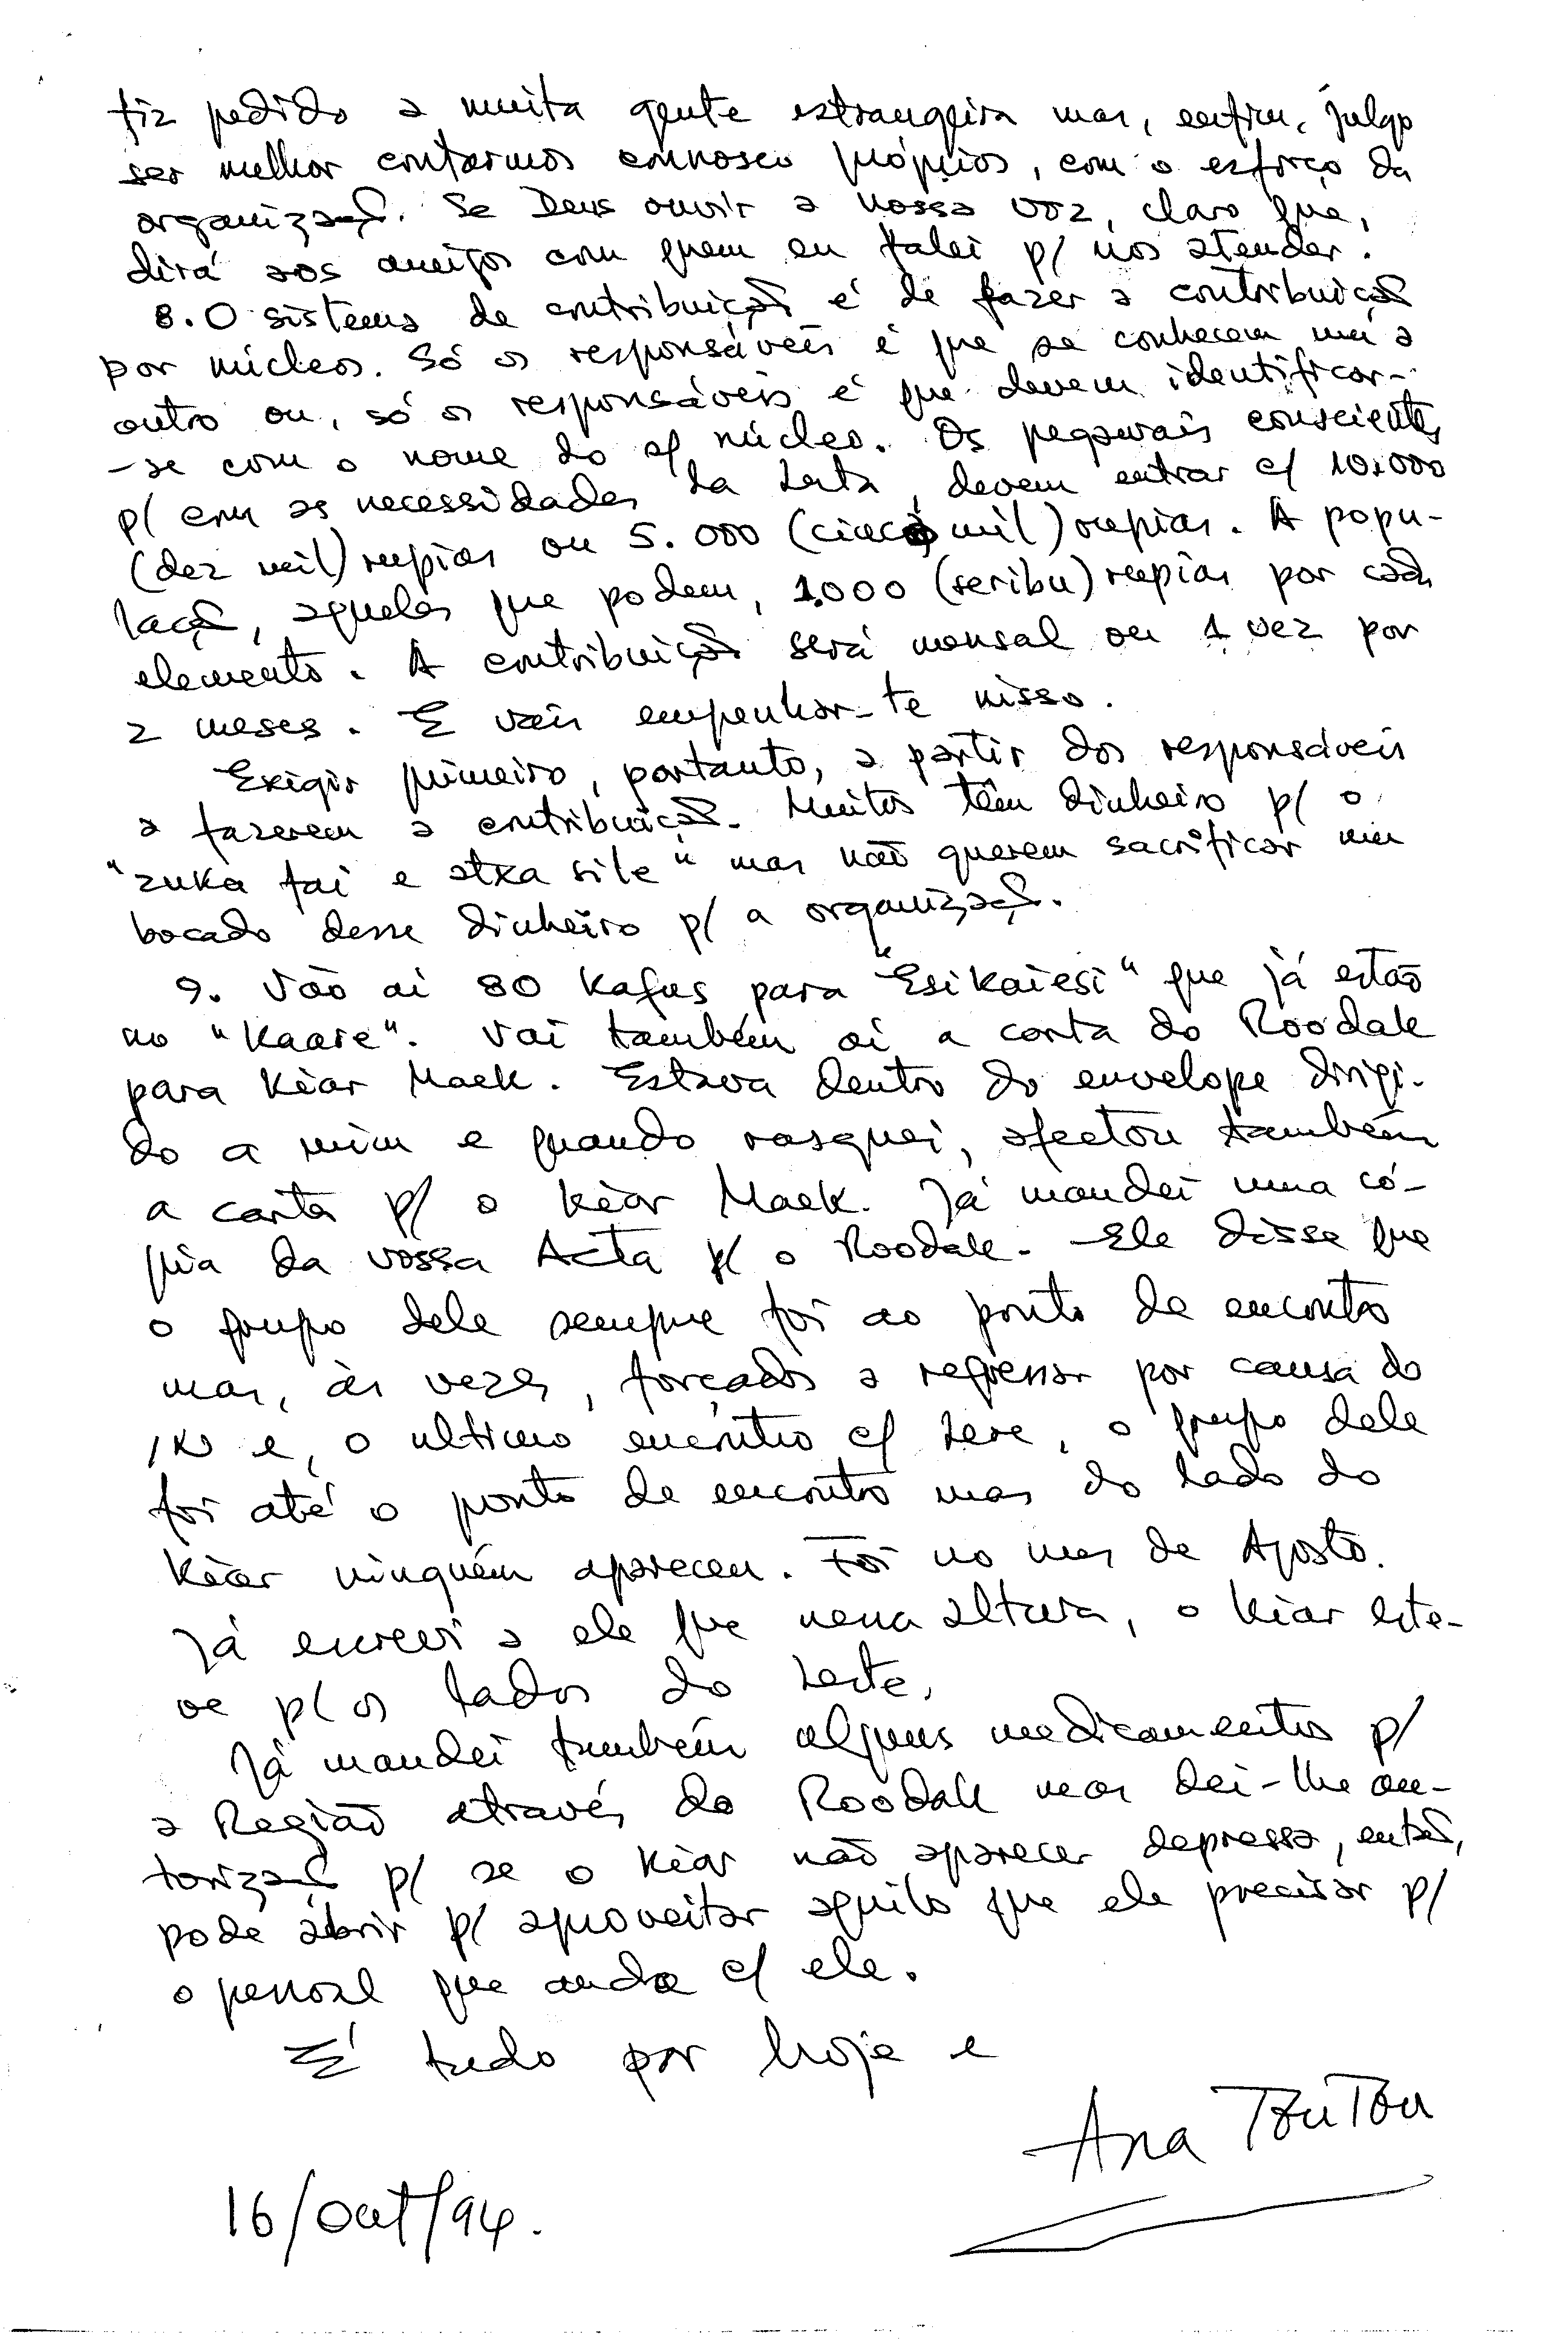 fiz pedido a muita gente estrangeira mas, enfim, julgo
ser melhor contarmos connosco próprios, com o esforço da
organização. Se Deus ouvir a nossa voz, claro que,
dirá aos amigos com quem eu falei p/ nos atender.
8. O sistema de contribuição é de fazer a contribuição
por núcleos. Só os responsáveis é que se conhecem um a
outro ou, só os responsáveis é que devem identificar-
-se com o nome do s/ núcleo. Os pegawais conscientes
p/ com as necessidades da Luta, devem entrar c/ 10.000
(dez mil) rupias ou 5.000 (cinco mil) rupias. A popu-
lação, aqueles que podem, 1.000 (seribu) rupias por cada
elemento. A contribuição será mensal ou 1 vez por
2 meses. E vais empenhar-te nisso.
Exigir primeiro, portanto, a partir dos responsáveis
a fazerem a contribuição. Muitos têm dinheiro p/ o
"zuka fai e atxa sile" mas não querem sacrificar um
bocado desse dinheiro p/ a organização.
9. Vão aí 80 Kafus para "Esikaiesi" que já estão
no "Kaare". Vai também aí a carta do Roodale
para Kèar Maek. Estava dentro do envelope dirigi-
do a mim e quando rasguei, afectou também
a carta p/ o Kèar Maek. Já mandei uma có-
pia da vossa Acta p/ o Roodale. Ele disse que
o grupo dele sempre foi ao ponto de encontro
mas, às vezes, forçados a regressar por causa do
IN e, o ultimo encontro c/ Lere, o grupo dele
foi até o ponto de encontro mas do lado do
Kèar ninguém apareceu. Foi no mes de Agosto.
Já escrevi a ele que nessa altura, o Kèar este-
ve p/ os lados do Leste.
Já mandei também alguns medicamentos p/
a Região através do Roodale mas dei-lhe au-
torização p/ se o Kèar não aparecer depressa, então,
pode abrir p/ aproveitar aquilo que ele precisar p/
o pessoal que anda c/ ele.
É tudo por hoje e
Ana
16/Out/94.